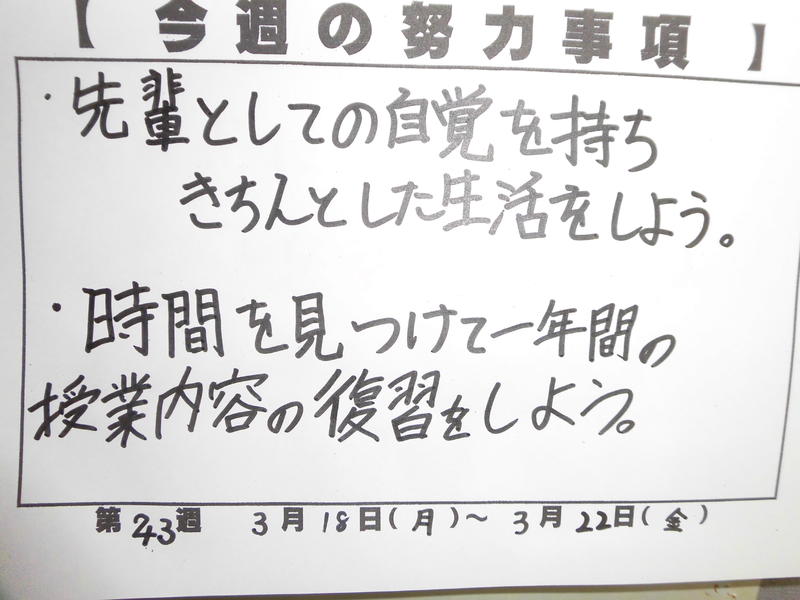 【今週の努力事項】
・先輩としての自覚を持ち
きちんとした生活をしよう。
・時間を見つけて一年間の
授業内容の復習をしよう。
第43週 3月18日(月)~3月22日(金)